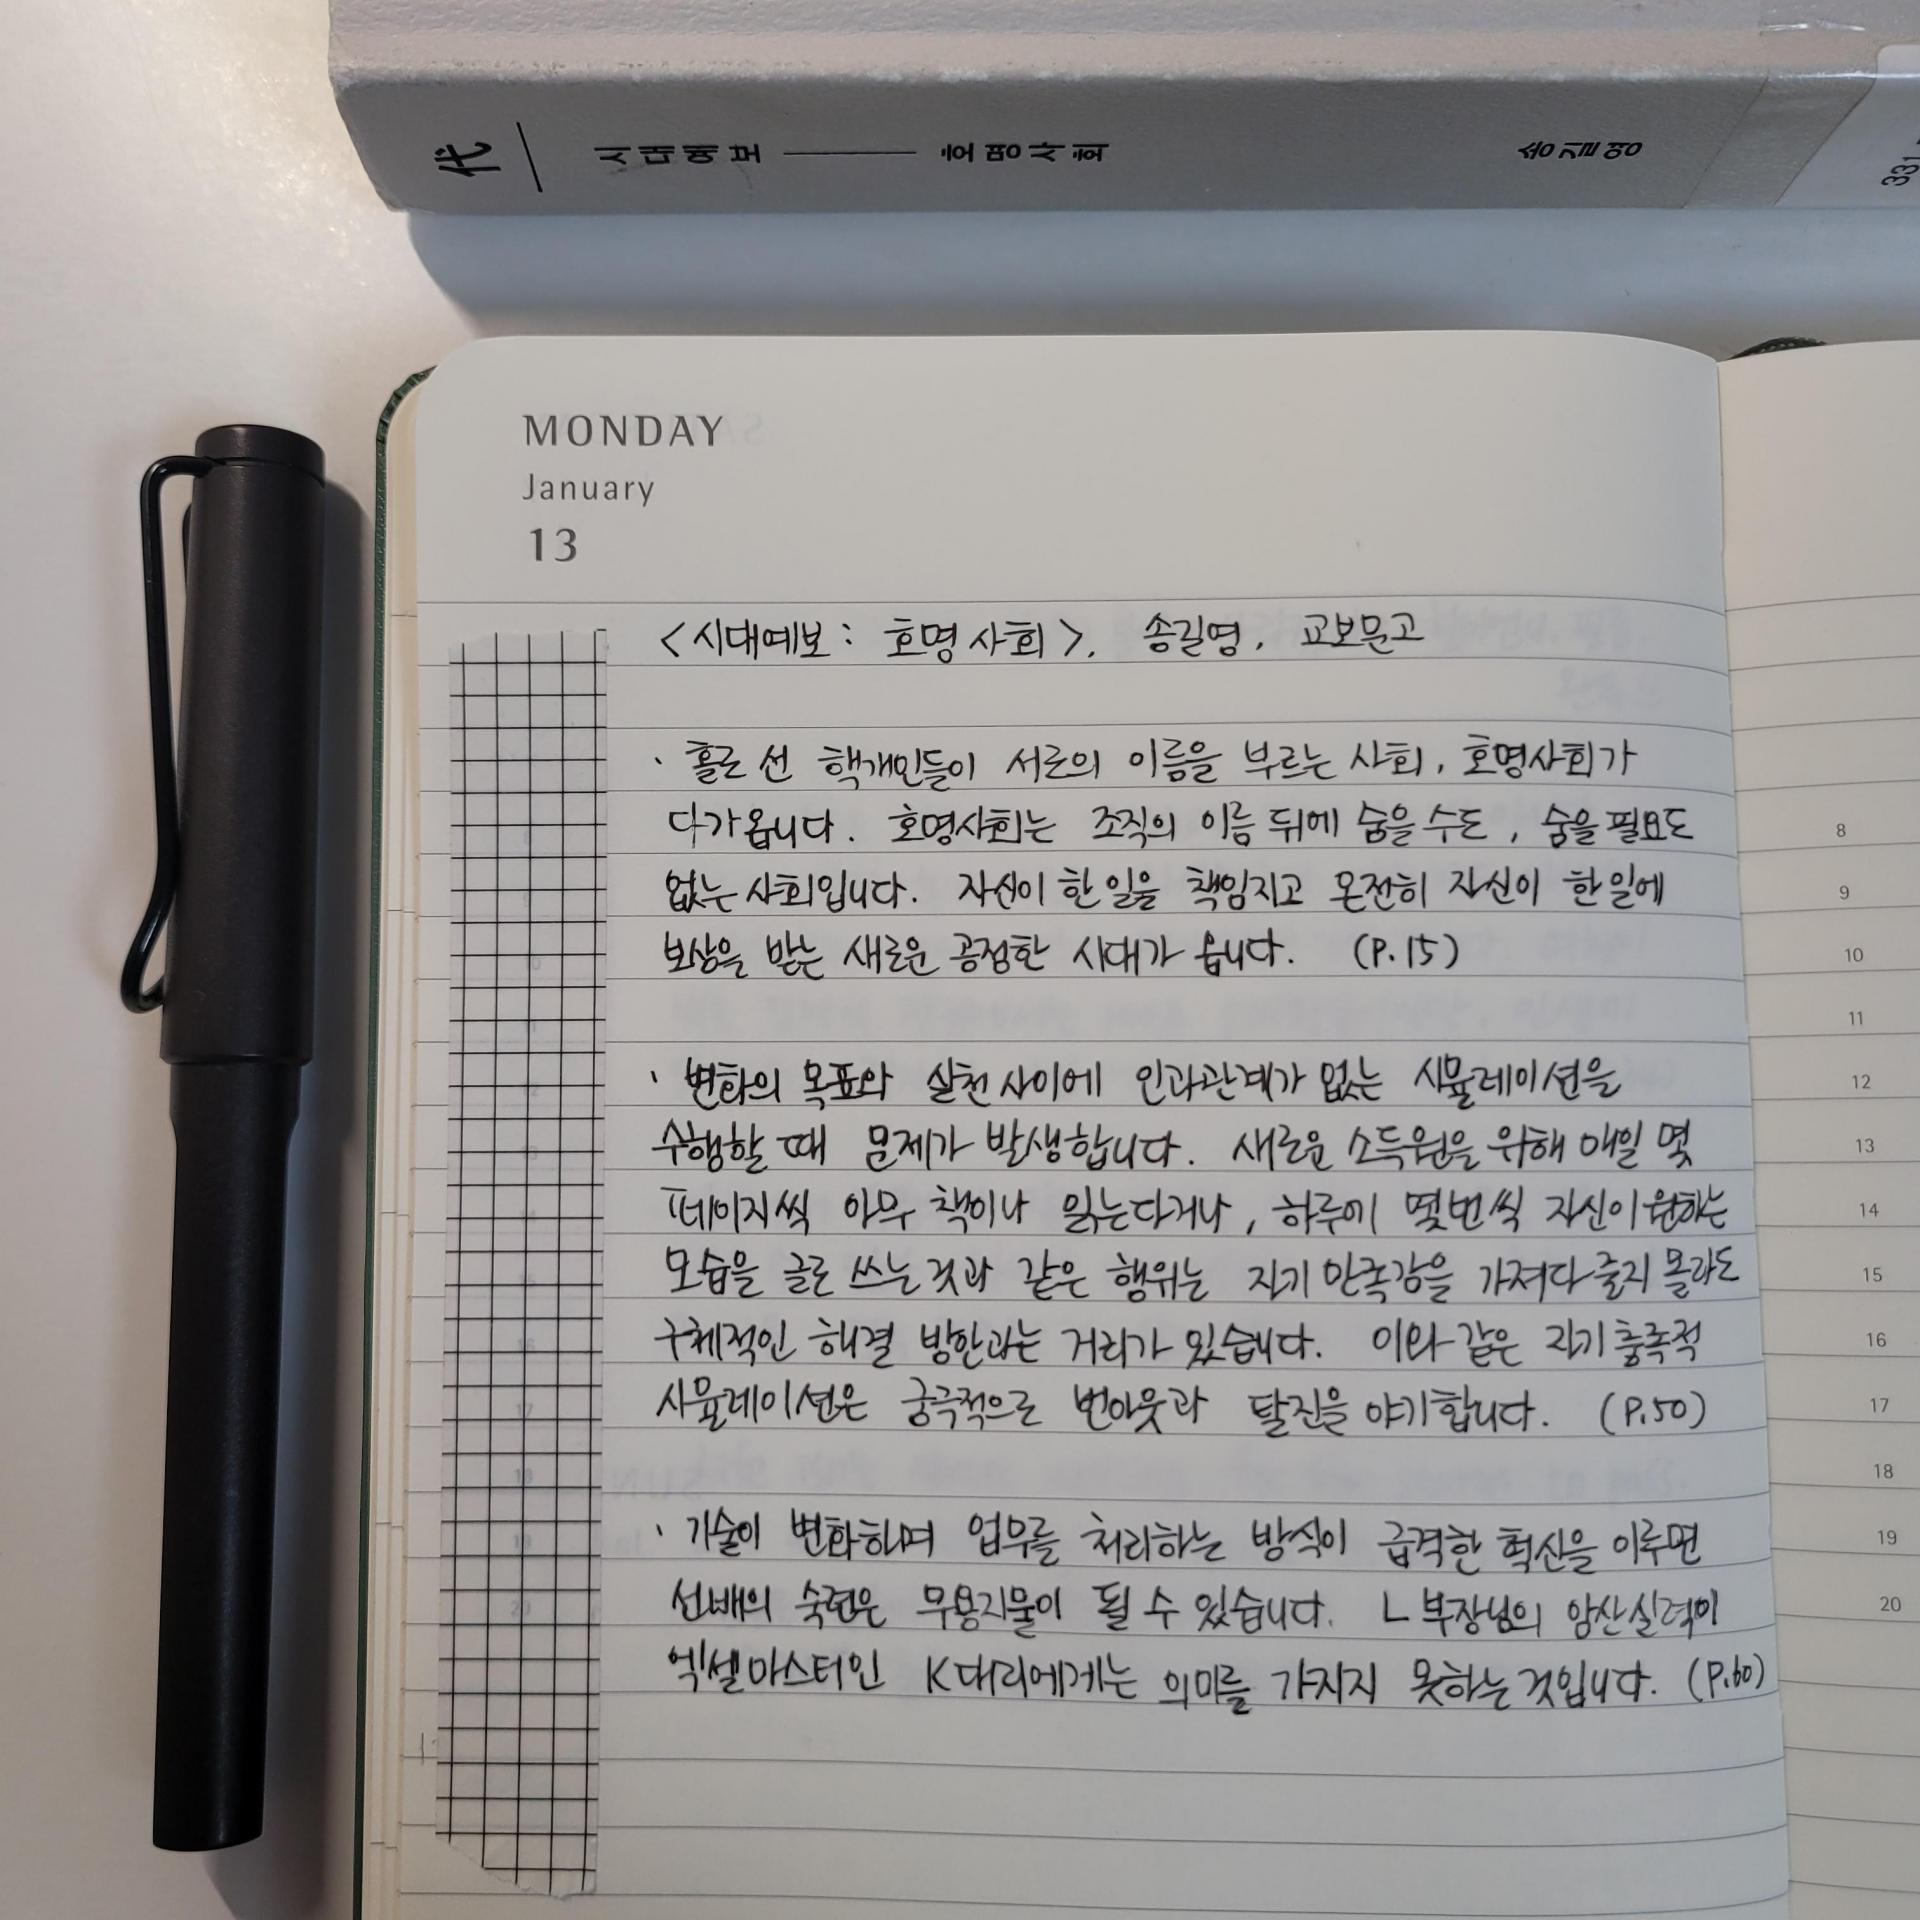 代 시대예보 호명사회 송길영
331.
MONDAY
January
13
<시대예보: 호명사회>. 송길영, 교보문고
· 홀로 선 핵개인들이 서로의 이름을 부르는 사회, 호명사회가
다가옵니다. 호명사회는 조직의 이름 뒤에 숨을 수도, 숨을 필요도
없는 사회입니다. 자신이 한 일을 책임지고 온전히 자신이 한 일에
보상을 받는 새로운 공정한 시대가 옵니다. (P.15)
· 변화의 목표와 실천 사이에 인과관계가 없는 시뮬레이션을
수행할 때 문제가 발생합니다. 새로운 소득원을 위해 매일 몇
페이지씩 아무 책이나 읽는다거나, 하루에 몇번씩 자신이 원하는
모습을 글로 쓰는 것과 같은 행위는 자기 만족감을 가져다 줄지 몰라도
구체적인 해결 방안과는 거리가 있습니다. 이와 같은 자기 충족적
시뮬레이션은 궁극적으로 번아웃과 탈진을 야기합니다. (P.50)
· 기술이 변화하며 업무를 처리하는 방식이 급격한 혁신을 이루면
선배의 숙련은 무용지물이 될 수 있습니다. L부장님의 암산실력이
엑셀마스터인 K대리에게는 의미를 가지지 못하는 것입니다. (P.60)
8
9
10
11
12
13
14
15
16
17
18
19
20